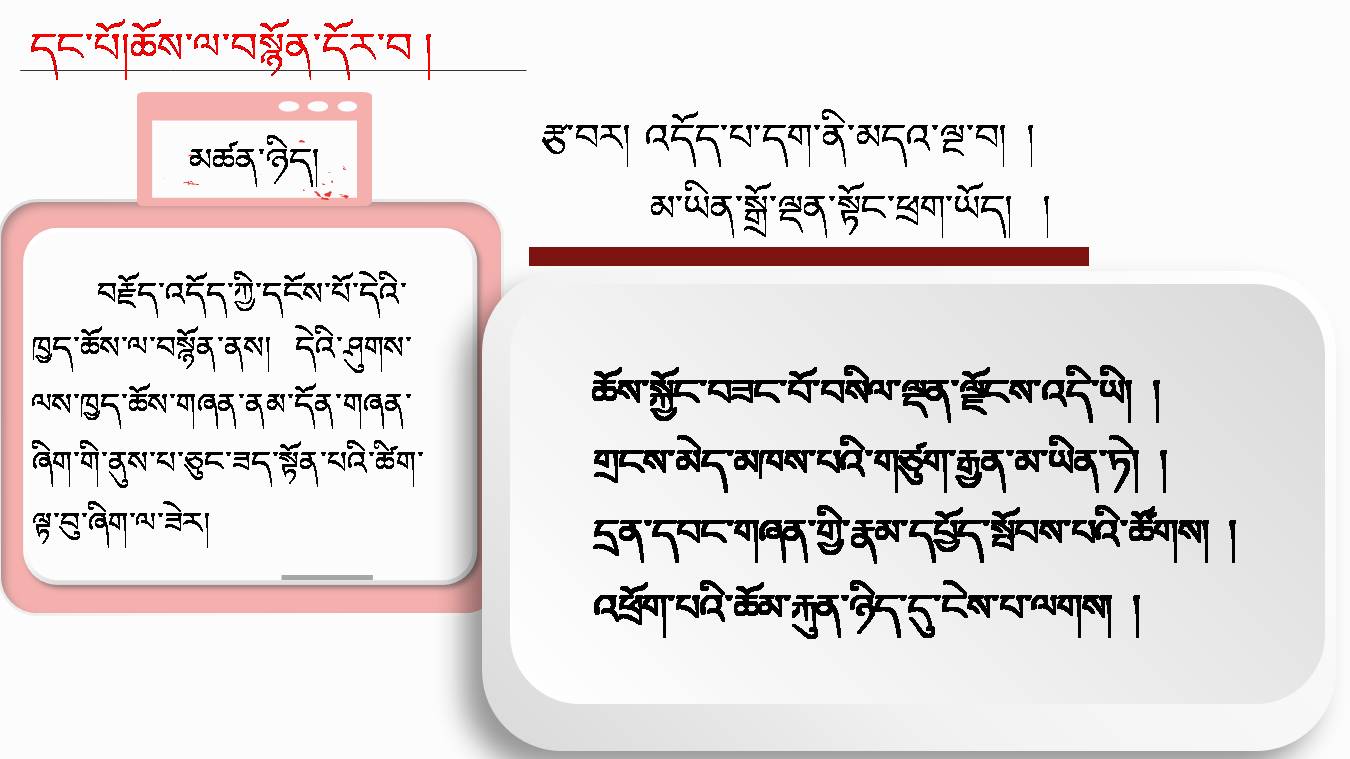 དང་པོ།ཆོས་ལ་བསྙོན་དོར་བ །
མཚན་ཉིད།
བརྗོད་འདོད་ཀྱི་དངོས་པོ་དེའི་
ཁྱད་ཆོས་ལ་བསྙོན་ནས། དེའི་ཤུགས་
ལས་ཁྱད་ཆོས་གཞན་ནམ་དོན་གཞན་
ཞིག་གི་ནུས་པ་ཅུང་ཟད་སྟོན་པའི་ཚིག་
ལྟ་བུ་ཞིག་ལ་ཟེར།
རྩ་བར། འདོད་པ་དག་ནི་མདའ་ལྔ་བ། །
མ་ཡིན་སྒྲོ་ལྡན་སྟོང་ཕྲག་ཡོད། །
ཆོས་སྐྱོང་བཟང་པོ་བསིལ་ལྡན་ལྗོངས་འདི་ཡི། །
གྲངས་མེད་མཁས་པའི་གཙུག་རྒྱན་མ་ཡིན་ཏེ། །
དྲན་དབང་གཞན་གྱི་རྣམ་དཔྱོད་སྤོབས་པའི་ཚོགས། །
འཕྲོག་པའི་ཆོམ་རྐུན་ཉིད་དུ་ངེས་པ་ལགས། །